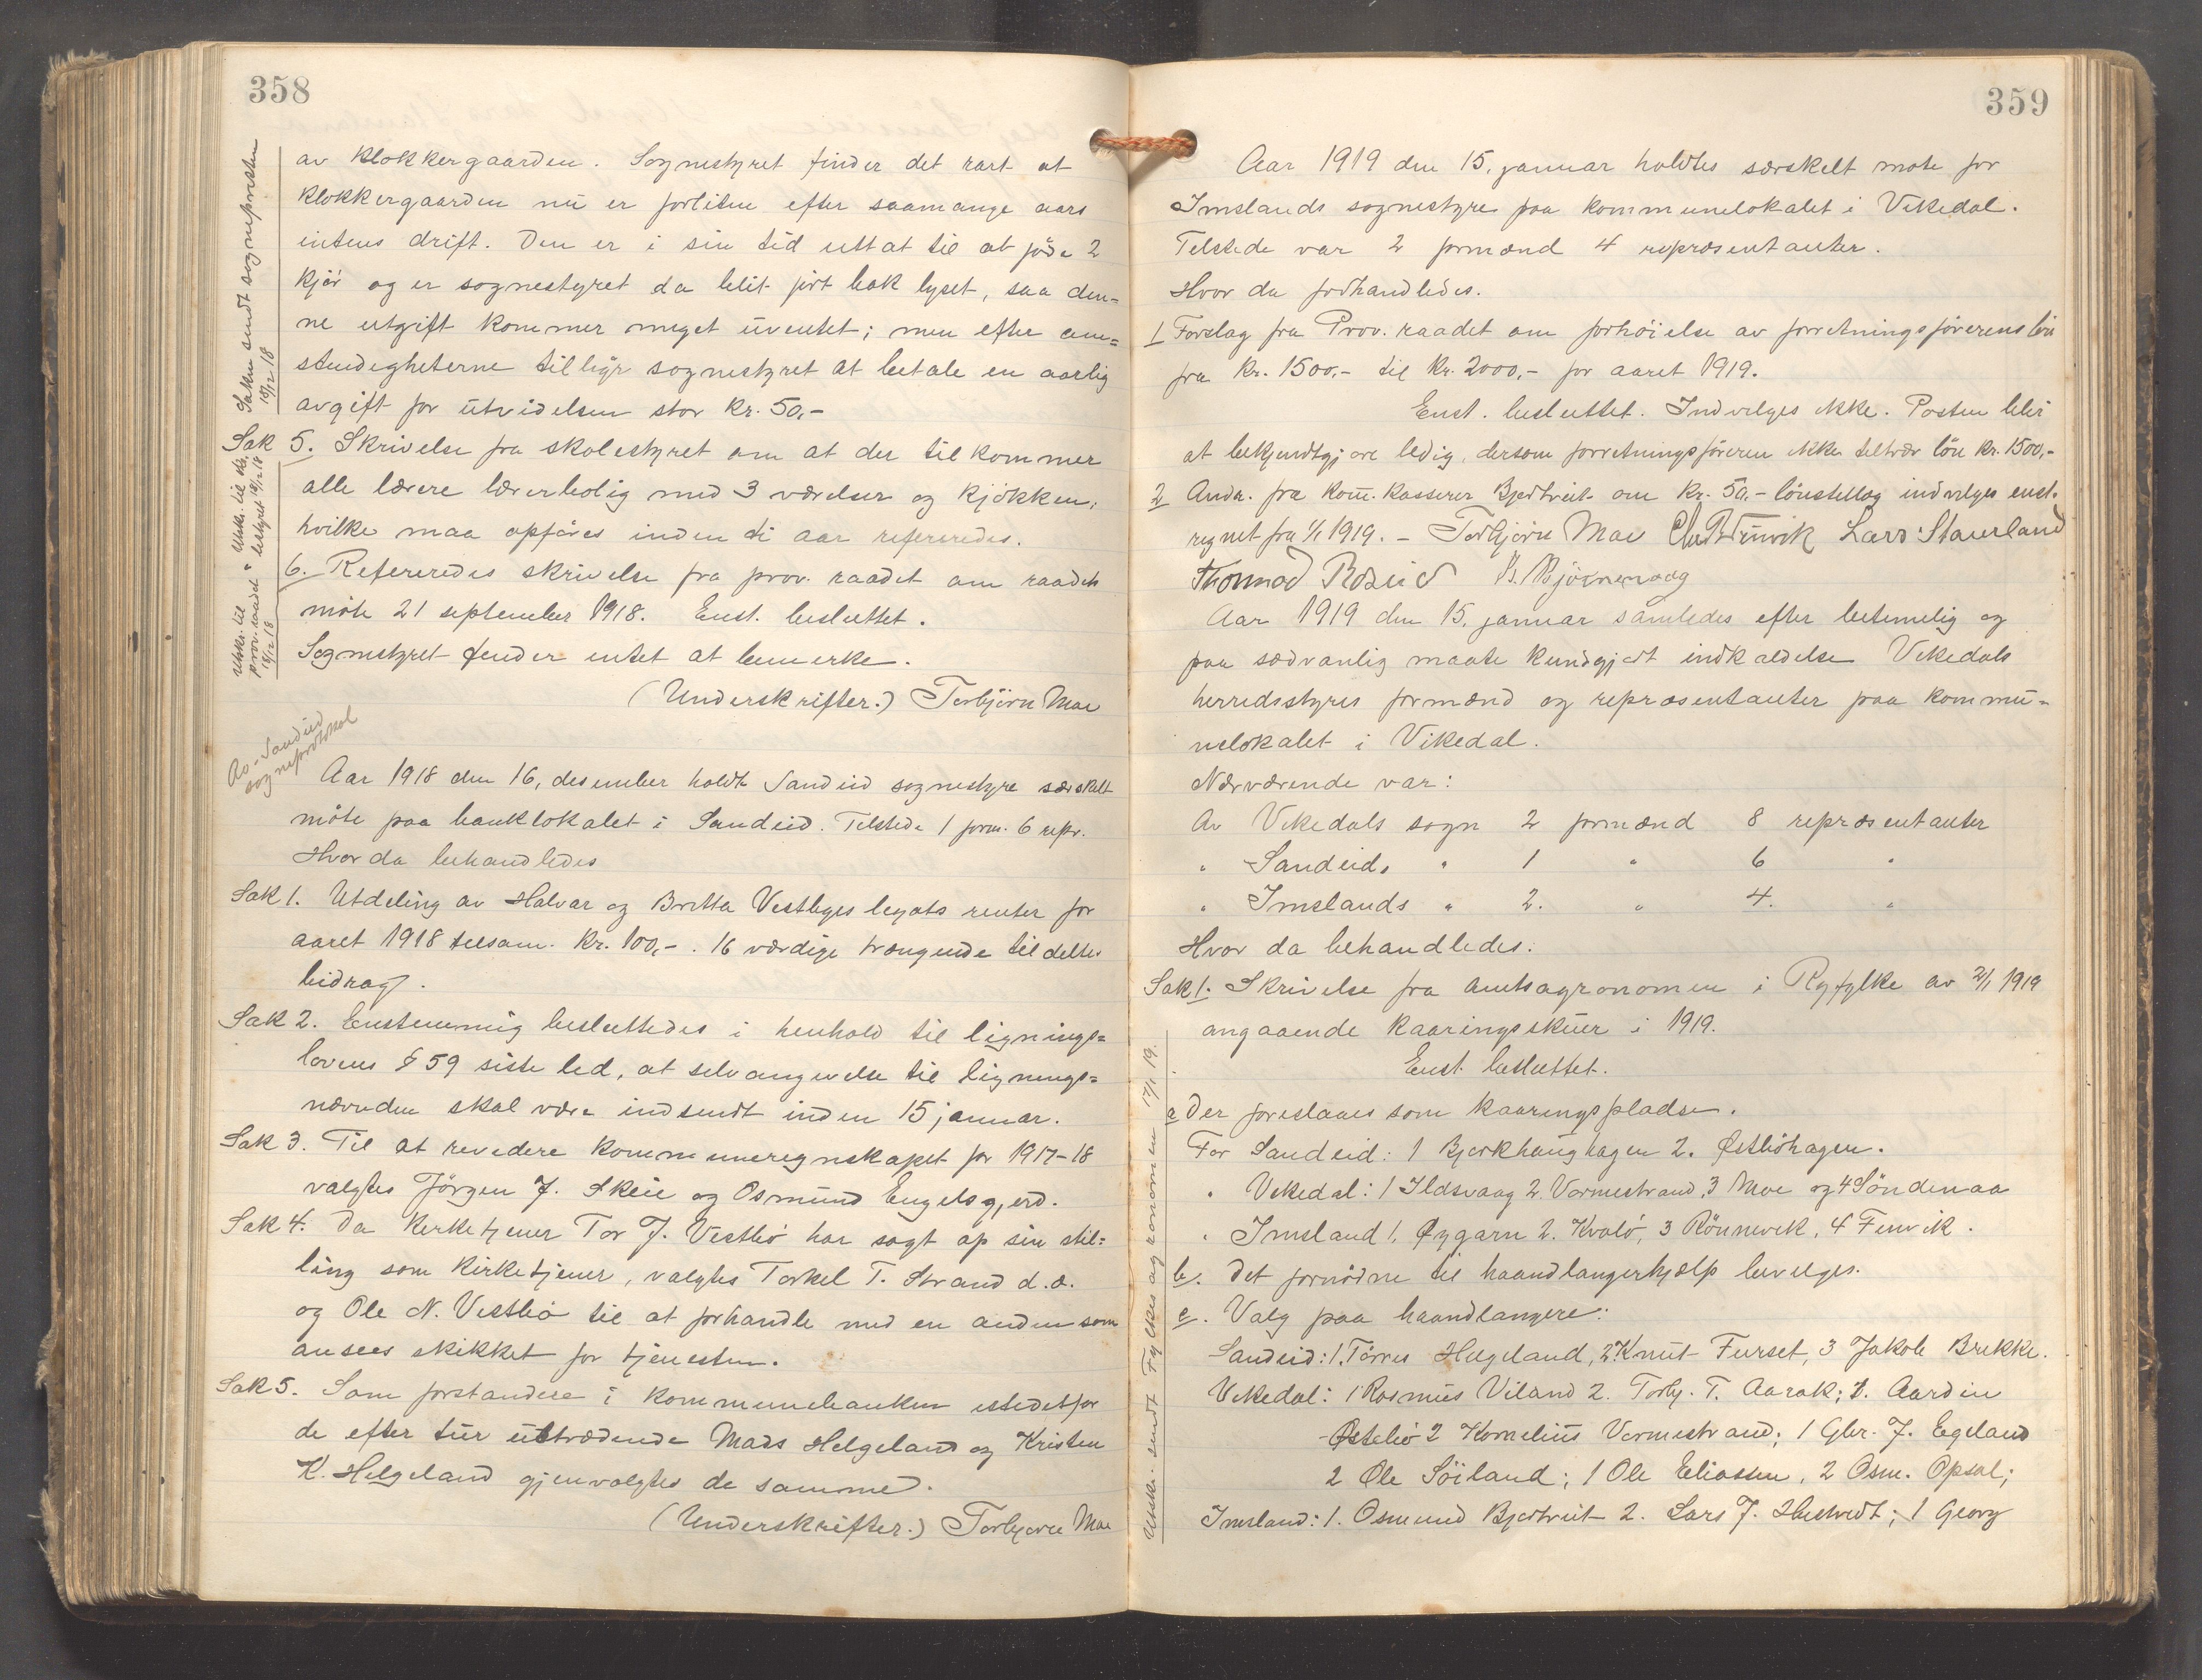 358
av klokkergaarden. Sognestyret finder det rart at
klokkergaarden nu er forliten efter saamange aars
intens drift. Den er i sin tid uttat til at föde 2
kjör og er sognestyret da blit fört bak lyset, saa den=
ne utgift kommer meget uventet; men efter om=
stendigheterne tilligr sognestyret at betale en aarlig
avgift for utvidelsen stor kr. 50,-
Saken sendt sognepresten
18/12 18
Sak 5. Skrivelse fra skolestyret om at der tilkommer
alle lærere lærerbolig med 3 værelser og kjökken,
hvilke maa opföres inden ti aar refereredes.
Utskr. til sko-
lestyret 18/12 18
6. Refereredes skrivelse fra prov. raadet om raadets
möte 21 september 1918. Enst. besluttet.
Sognestyret finder intet at bemerke.
Utskr. til
prov. raadet
18/12 18
(Underskrifter.) Torbjörn Moe
Av Sandeid
sogneprotokol
Aar 1918 den 16, desember holdt Sandeid sognestyre særskilt
möte paa banklokalet i Sandeid. Tilstede 1 form. 6 repr.
Hvor da behandledes
Sak 1. Utdeling av Halvar og Britta Vestbøes legats renter for
aaret 1918 tilsam. kr. 100,-. 16 værdige trængende tildeltes
bidrag.
Sak 2. Enstemmig besluttedes i henhold til lignings=
lovens § 59 siste led, at selvangivelse til lignings=
nævnden skal være indsendt inden 15 januar.
Sak 3. Til at revidere kommuneregnskapet for 1917-18
valgtes Jörgen J. Skeie og Osmund Engelsgjerd.
Sak 4. Da kirketjener Tor J. Vestbö har sagt op sin stil=
ling som kirketjener, valgtes Torkel T. Strand d.æ.
og Ole N. Vestbö til at forhandle med en anden som
ansees skikket for tjenesten.
Sak 5. Som forstandere i kommunebanken istedetfor
de efter tur uttrædende Mads Helgeland og Kristen
K. Helgeland gjenvalgtes de samme.
(Underskrifter.) Torbjörn Moe
359
Aar 1919 den 15. januar holdtes særskelt möte for
Imslands sognestyre paa kommunelokalet i Vikedal.
Tilstede var 2 formænd 4 repræsentanter.
Hvor da forhandledes.
1 Forslag fra Prov. raadet om forhöielse av forretningsförerens lön
fra kr. 1500,- til kr. 2000,- for aaret 1919.
Enst. besluttet. Indvilges ikke. Posten blir
at bekjendtgjöre ledig, dersom forretningsföreren ikke tiltrær lön kr. 1500,-
2 Andr. fra kom. kasserer Bjertveit om kr. 50,- lönstillæg indvilges enst.
regnet fra 1/1 1919. - Torbjörn Moe Chr. B. Fenvik Lars Staurland
Thormod Roseid B. Björnevaag
Aar 1919 den 15. januar samledes efter betimelig og
paa sædvanlig maate kundgjort indkaldelse Vikedals
herredsstyres formænd og repræsentanter paa kommu-
nelokalet i Vikedal.
Nærværende var:
Av Vikedals sogn 2 formænd 8 repræsentanter
" Sandeids " 1 " 6 "
" Imslands " 2. " 4. "
Hvor da behandledes:
Sak 1. Skrivelse fra amtsagronomen i Ryfylke av 2/1 1919
angaaende kaaringsskuer i 1919.
Enst. besluttet.
a Der foreslaaes som kaaringspladse.
For Sandeid: 1 Bjerkhaughagen 2. Østböhagen.
" Vikedal: 1 Ildsvaag 2. Vormestrand, 3 Moe og 4 Söndenaa
" Imsland 1. Øygarn 2. Kvalö, 3 Rönnevik, 4 Fenvik.
b. Det fornödne til haandlangerhjælp bevilges.
c. Valg paa haandlangere:
Sandeid: 1. Törres Helgeland, 2 Knut Furset, 3 Jakob Brekke.
Vikedal: 1 Rasmus Viland 2. Torb. T. Aarak; 1. Aardin
Østebö 2 Kornelius Vormestrand; 1 Gbr. J. Egeland
2 Ole Söiland; 1 Ole Eliassen, 2 Osm. Opsal;
Imsland: 1. Osmund Bjertveit 2. Lars J. Hustvedt; 1 Georg
Utsk. sendt Fylkesagronomen 17/1 19.